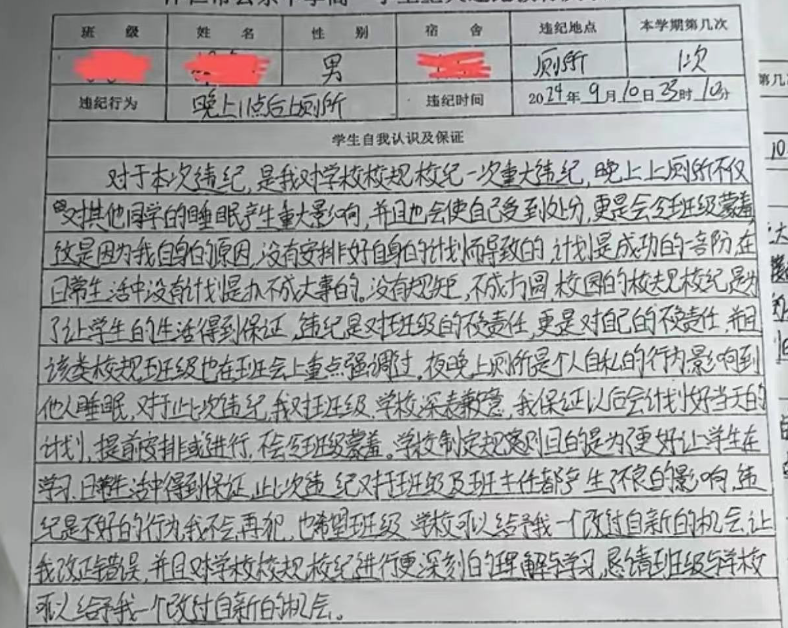 班 级 姓 名 性 别 宿 舍 违纪地点 本学期第几次
男 厕所 1次
违纪行为 晚上11点后上厕所 违纪时间 2024年9月10日23时10分
第几
学生自我认识及保证
10.
对于本次违纪,是我对学校校规校纪一次重大违纪,晚上上厕所不仅
对其他同学的睡眠产生重大影响,并且也会使自己受到处分,更是会令班级蒙羞
这是因为我自身的原因,没有安排好自身的计划而导致的,计划是成功的一部份,在
日常生活中没有计划是办不成大事的。没有规矩,不成方圆,校园的校规校纪是为
了让学生的生活得到保证,违纪是对班级的不负责任,更是对自己的不负责任,并且
该类校规班级也在班会上重点强调过,夜晚上厕所是个人自私的行为,影响到
他人睡眠,对于此次违纪,我对班级、学校深表歉意,我保证以后会计划好当天的
计划,提前安排或进行,不会令班级蒙羞。学校制定规章原则目的是为了更好让学生在
学习、日常生活中得到保证,此次违纪对于班级及班主任都产生了不良的影响,违
纪是不好的行为,我不会再犯,也希望班级、学校可以给予我一个改过自新的机会,让
我改正错误,并且对学校校规、校纪进行更深刻的理解与学习,恳请班级与学校
可以给予我一个改过自新的机会。